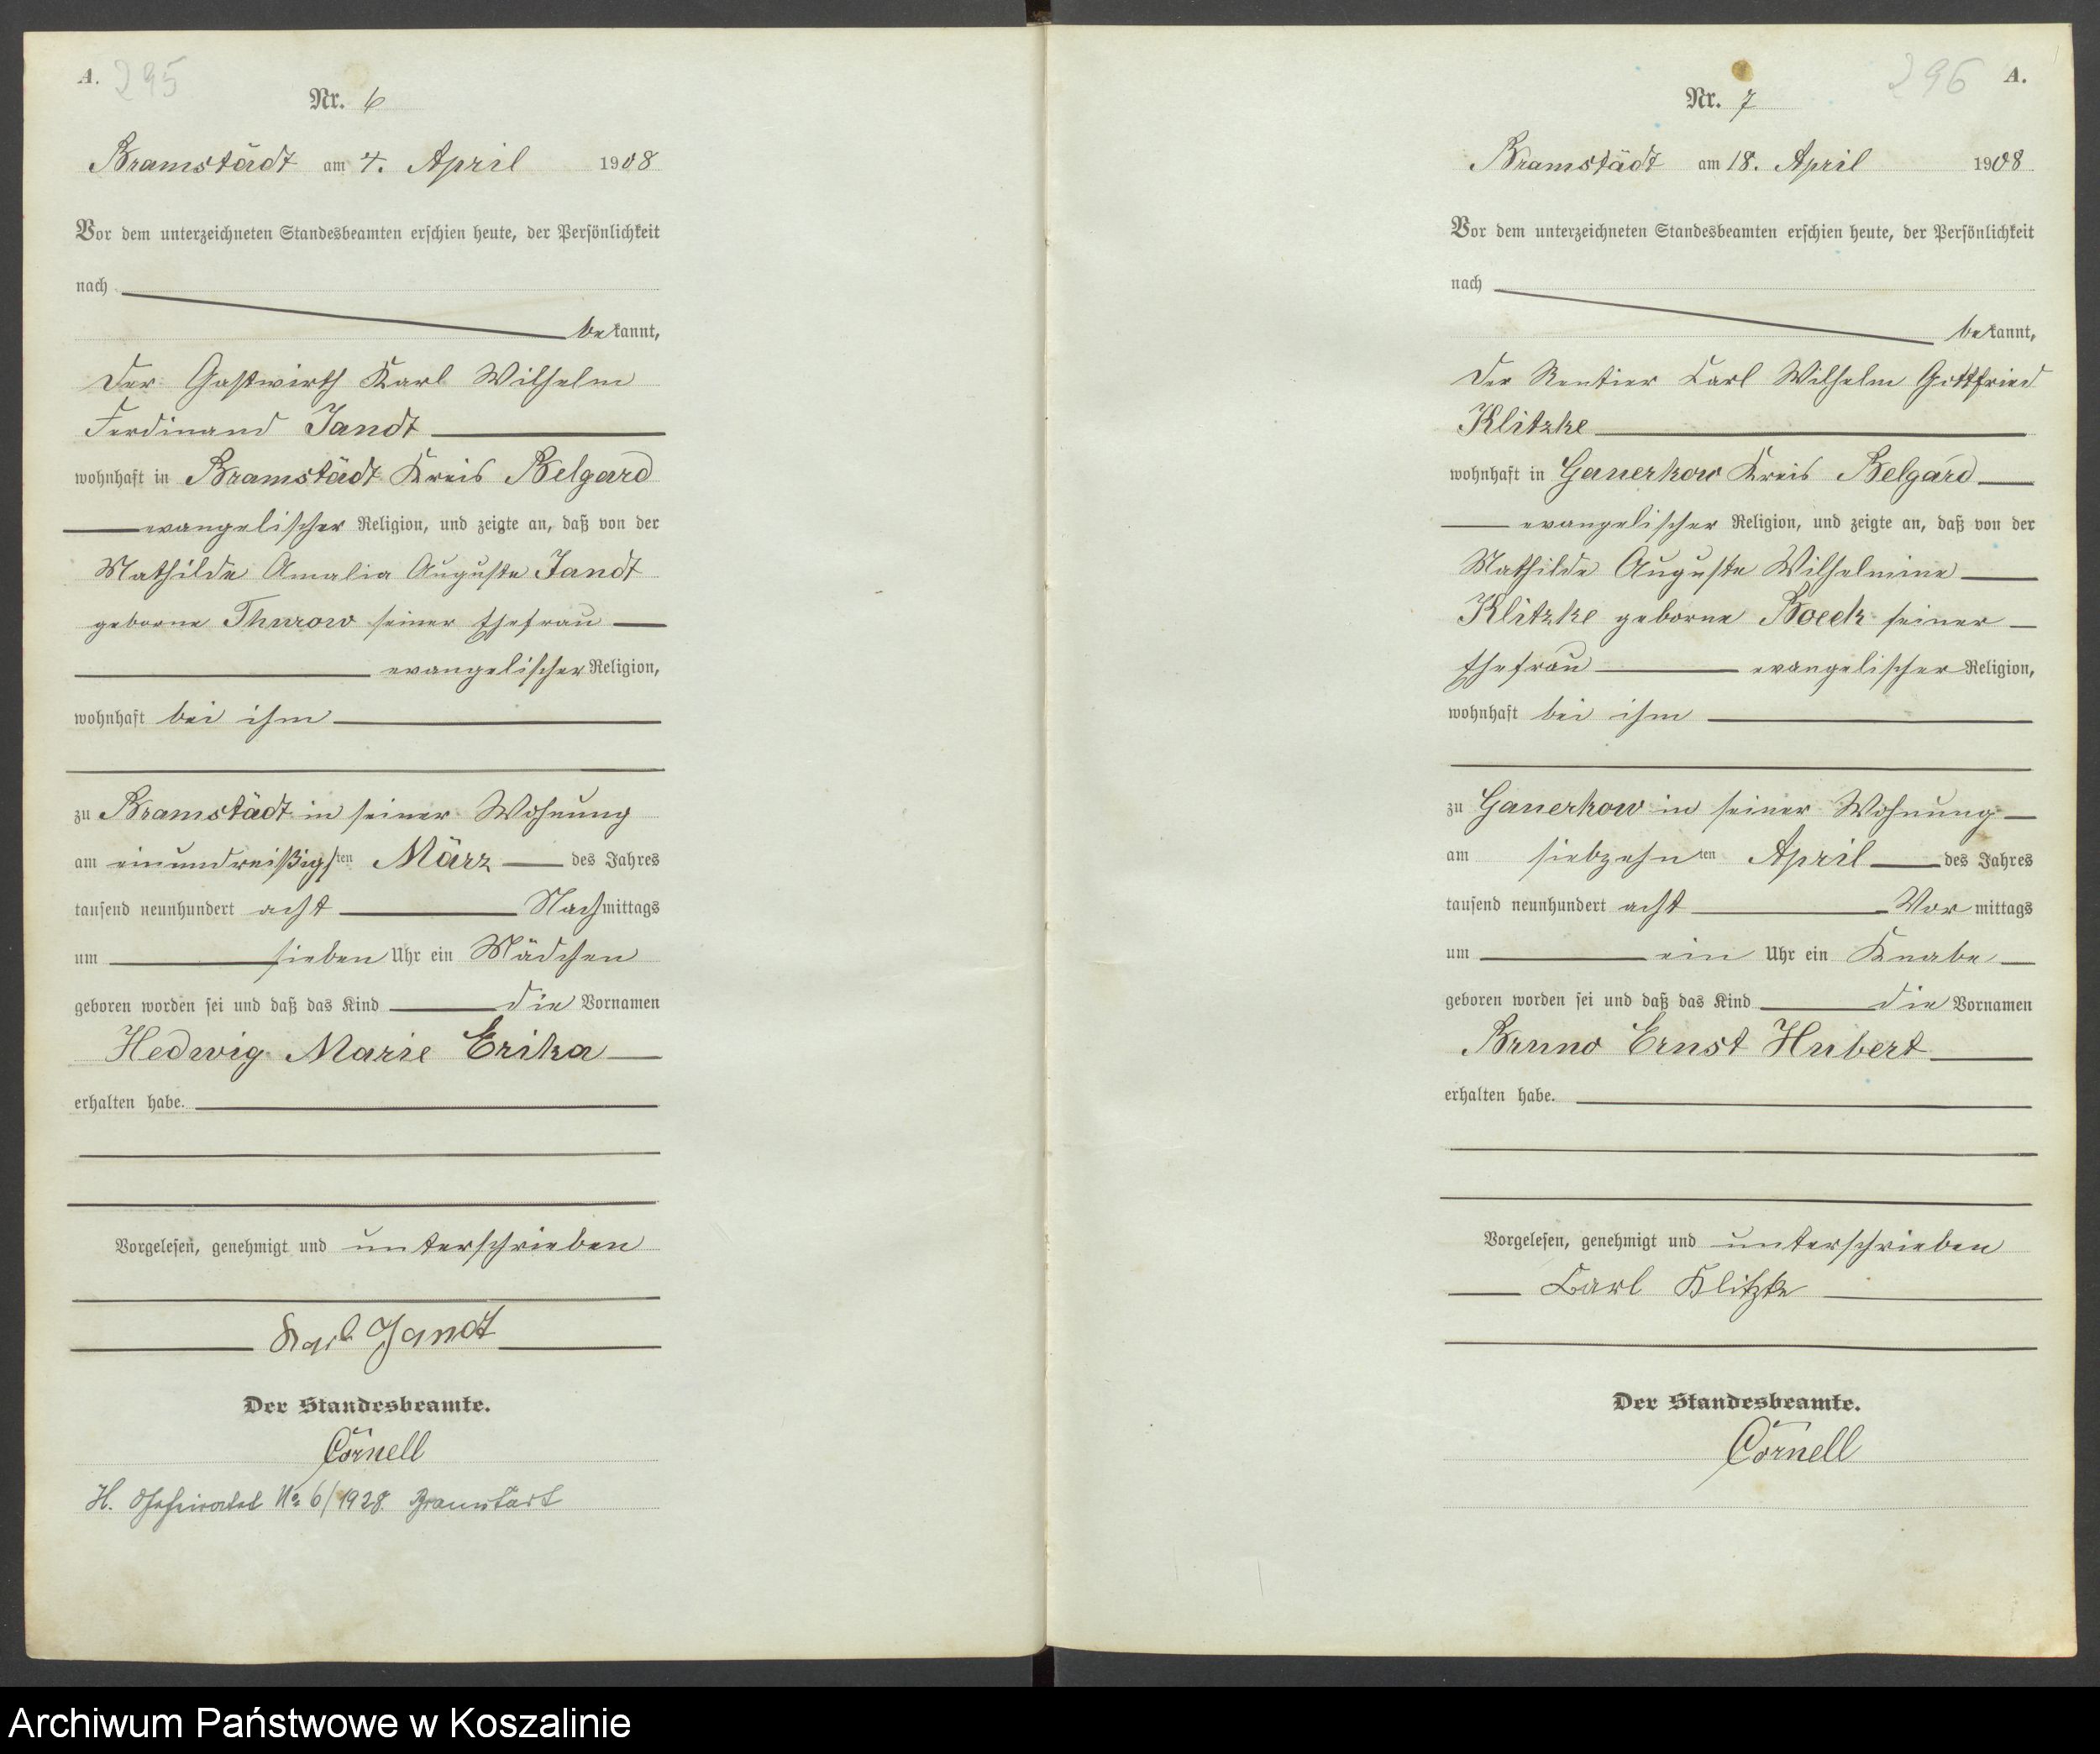 A. 295
Nr. 6
Bramstädt am 4. April 1908
Vor dem unterzeichneten Standesbeamten erschien heute, der Persönlichkeit
nach
bekannt,
der Gastwirth Karl Wilhelm
Ferdinand Jandt
wohnhaft in Bramstädt Kreis Belgard
evangelischer Religion, und zeigte an, daß von der
Mathilde Amalia Auguste Jandt
geborne Thurow seiner Ehefrau
evangelischer Religion,
wohnhaft bei ihm
zu Bramstädt in seiner Wohnung
am einunddreißigsten März des Jahres
tausend neunhundert acht Nachmittags
um sieben Uhr ein Mädchen
geboren worden sei und daß das Kind die Vornamen
Hedwig Marie Erika
erhalten habe.
Vorgelesen, genehmigt und unterschrieben
Karl Jandt
Der Standesbeamte.
Cornell
H. Eheheiratet No 6/1928 Bramstädt
296 A.
Nr. 7
Bramstädt am 18. April 1908
Vor dem unterzeichneten Standesbeamten erschien heute, der Persönlichkeit
nach
bekannt,
der Rentier Carl Wilhelm Gottfried
Klitzke
wohnhaft in Ganerkow Kreis Belgard
evangelischer Religion, und zeigte an, daß von der
Mathilde Auguste Wilhelmine
Klitzke geborne Boeck seiner
Ehefrau evangelischer Religion,
wohnhaft bei ihm
zu Ganerkow in seiner Wohnung
am siebzehnten April des Jahres
tausend neunhundert acht Vormittags
um ein Uhr ein Knabe
geboren worden sei und daß das Kind die Vornamen
Bruno Ernst Hubert
erhalten habe.
Vorgelesen, genehmigt und unterschrieben
Carl Klitzke
Der Standesbeamte.
Cornell
Archiwum Państwowe w Koszalinie